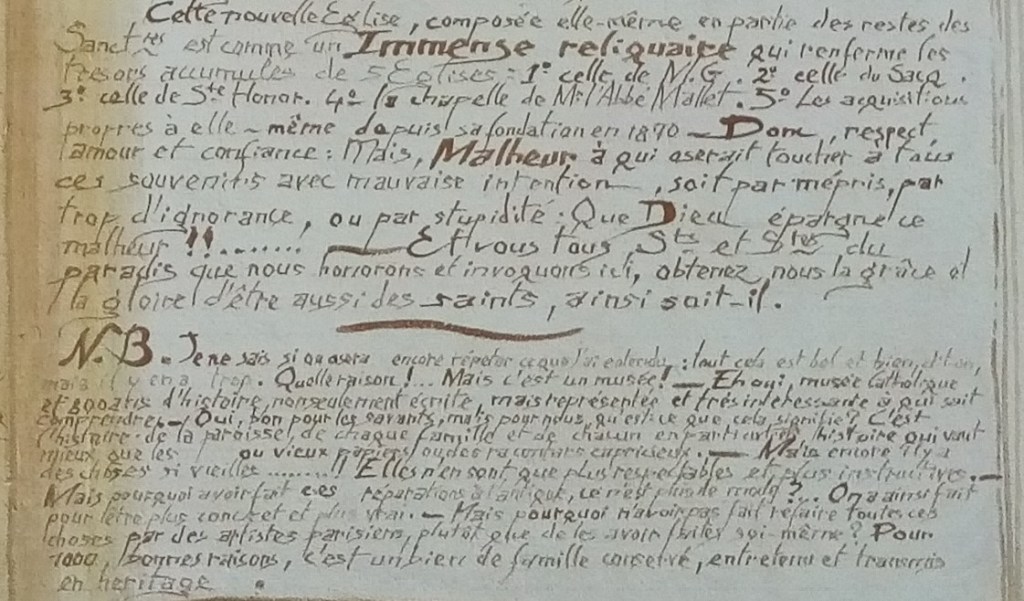 Cette nouvelle Eglise, composée elle-même en partie des restes des
Sanct.res est comme un Immense reliquaire qui renferme les
trésors accumulés de 5 Eglises : 1º celle de M.G. 2º celle du Sacq.
3º celle de Ste Honor. 4º la chapelle de Mr l'Abbé Mallet. 5º Les acquisitions
propres à elle-même depuis sa fondation en 1870 — Donc, respect,
amour et confiance : Mais, Malheur à qui oserait toucher à tous
ces souvenirs avec mauvaise intention, soit par mépris, par
trop d'ignorance, ou par stupidité : Que Dieu épargne ce
malheur !!........ — Et vous tous Sts et Stes du
paradis que nous honorons et invoquons ici, obtenez nous la grâce et
la gloire d'être aussi des saints, ainsi soit-il.
N.B. Je ne sais si on osera encore répéter ce que j'ai entendu, : tout cela est bel et bien, dit-on,
mais il y en a trop. Quelle raison !... Mais c'est un musée ! — Eh oui, musée catholique
et d'histoire, non seulement écrite, mais représentée et très intéressante à qui sait
comprendre. — Oui, bon pour les savants, mais pour nous, qu'est-ce que cela signifie ? C'est
l'histoire de la paroisse, de chaque famille et de chacun en particulier, histoire qui vaut
mieux que les ou vieux papiers ou des racontars capricieux. — Mais encore il y a
des choses si vieilles ........!! Elles n'en sont que plus respectables et plus instructives. —
Mais pourquoi avoir fait ces réparations à l'antique, ce n'est plus de mode ?... On a ainsi fait
pour être plus concret et plus vrai. — Mais pourquoi n'avoir pas fait refaire toutes ces
choses par des artistes parisiens, plutôt que de les avoir faites soi-même ? Pour
1000 bonnes raisons, c'est un bien de famille conservé, entretenu et transmis
en héritage.